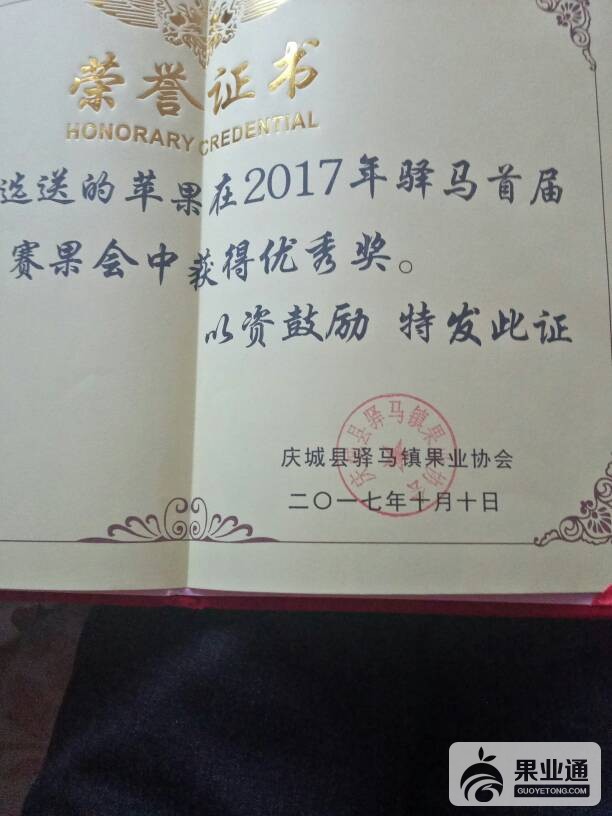 荣誉证书
HONORARY CREDENTIAL
选送的苹果在2017年驿马首届
赛果会中获得优秀奖。
以资鼓励 特发此证
庆城县驿马镇果业协会
庆城县驿马镇果业协会
二〇一七年十月十日
果业通
GUOYETONG.COM